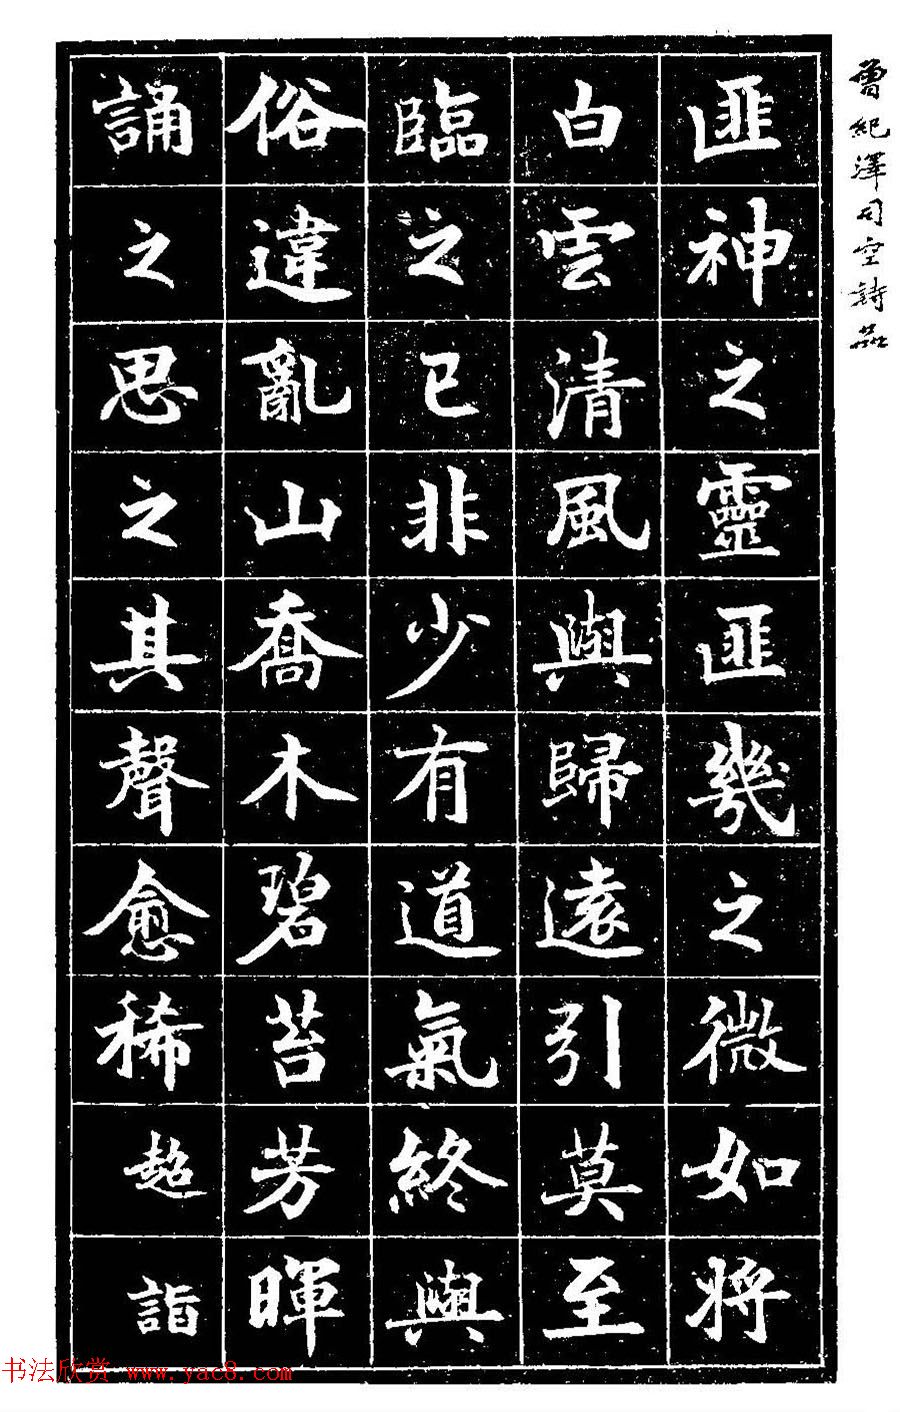 曾紀澤司空詩品
匪神之靈匪幾之微如將
白雲清風與歸遠引莫至
臨之已非少有道氣終與
俗違亂山喬木碧苔芳暉
誦之思之其聲愈稀超詣
书法欣赏 www.yac8.com